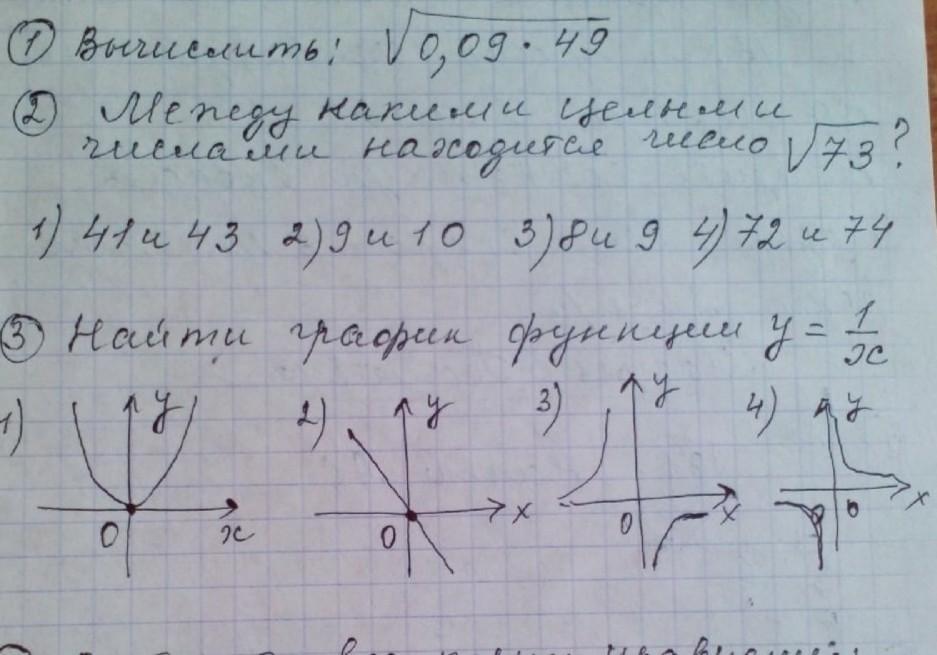 ① Вычислить: √0,09 · 49
② Между какими целыми
числами находится число √73?
1) 41 и 43 2) 9 и 10 3) 8 и 9 4) 72 и 74
③ Найти график функции y = 1/x
1) y 2) y 3) y 4) y
0 x 0 x 0 x 0 x